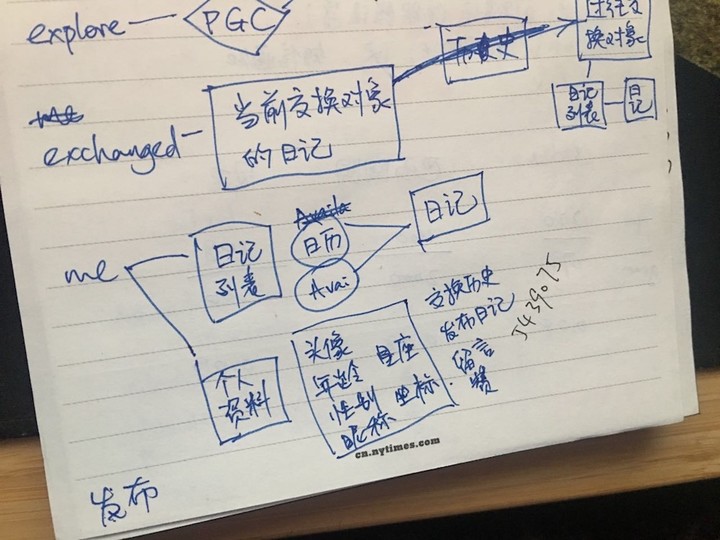 explore
PGC
过往交
换对象
日记
列表
日记
exchanged
当前交换对象
的日记
me
日记
列表
日历
Avai
日记
个人
资料
头像
年龄 星座
性别 坐标
昵称
交换历史
发布日记
留言
赞
J439075
cn.nytimes.com
发布